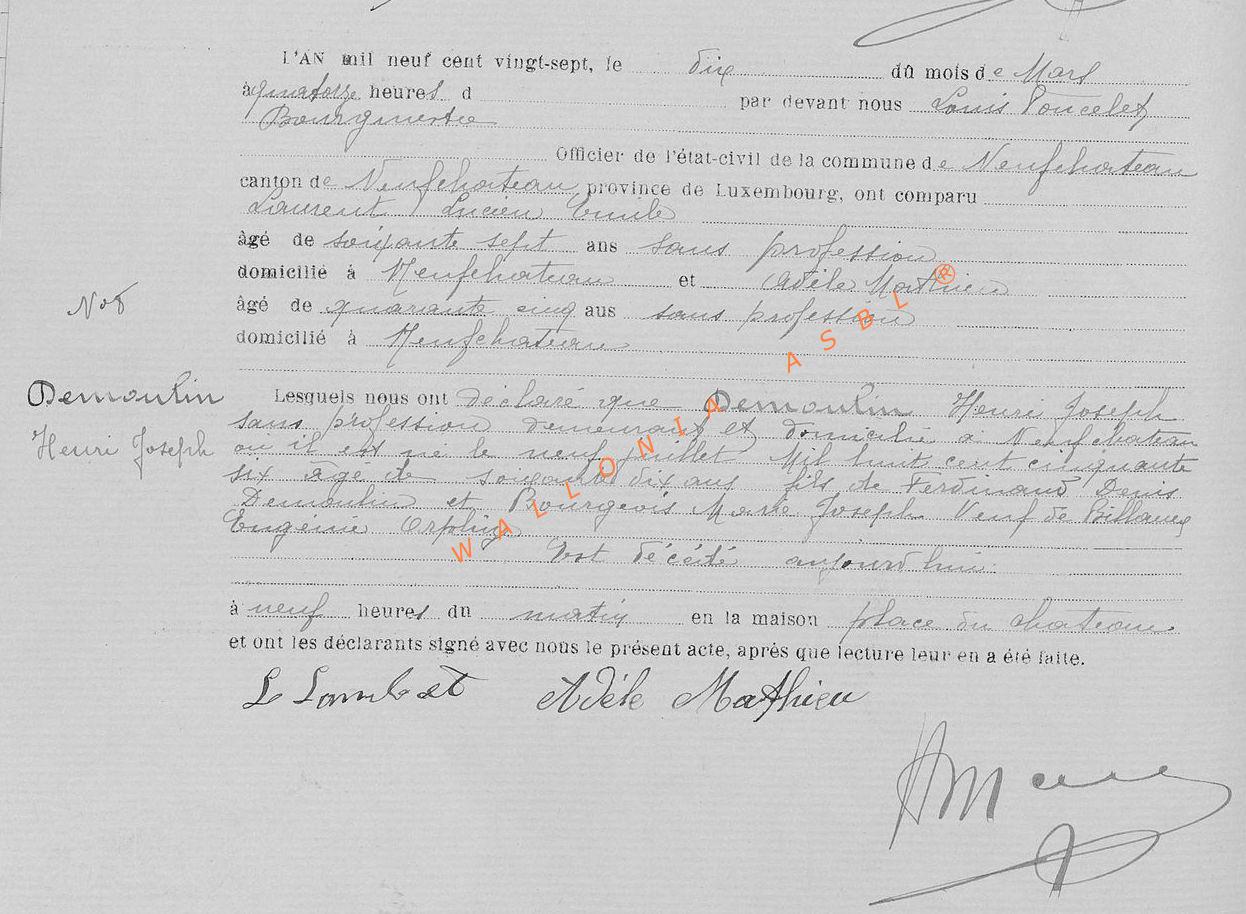 L'AN mil neuf cent vingt-sept, le dix du mois de Mars
à quatorze heures d par devant nous Louis Poncelet
Bourgmestre
Officier de l'état-civil de la commune de Neufchateau
canton de Neufchateau province de Luxembourg, ont comparu
Laurent Lucien Emile
âgé de soixante sept ans sans profession
domicilié à Neufchateau et Adèle Mathieu
âgé de quarante cinq ans sans profession
domicilié à Neufchateau
N° 8
Demoulin
Henri Joseph
Lesquels nous ont déclaré que Demoulin Henri Joseph
sans profession demeurant et domicilié à Neufchateau
où il est né le neuf juillet Mil huit cent cinquante
six agé de soixante dix ans fils de Ferdinand Denis
Demoulin et Bourgeois Marie Joseph Veuf de
Eugénie
Est décédé aujourd'hui
à neuf heures du matin en la maison place du chateau
et ont les déclarants signé avec nous le présent acte, après que lecture leur en a été faite.
Adèle Mathieu
WALLONIA ASBL ®